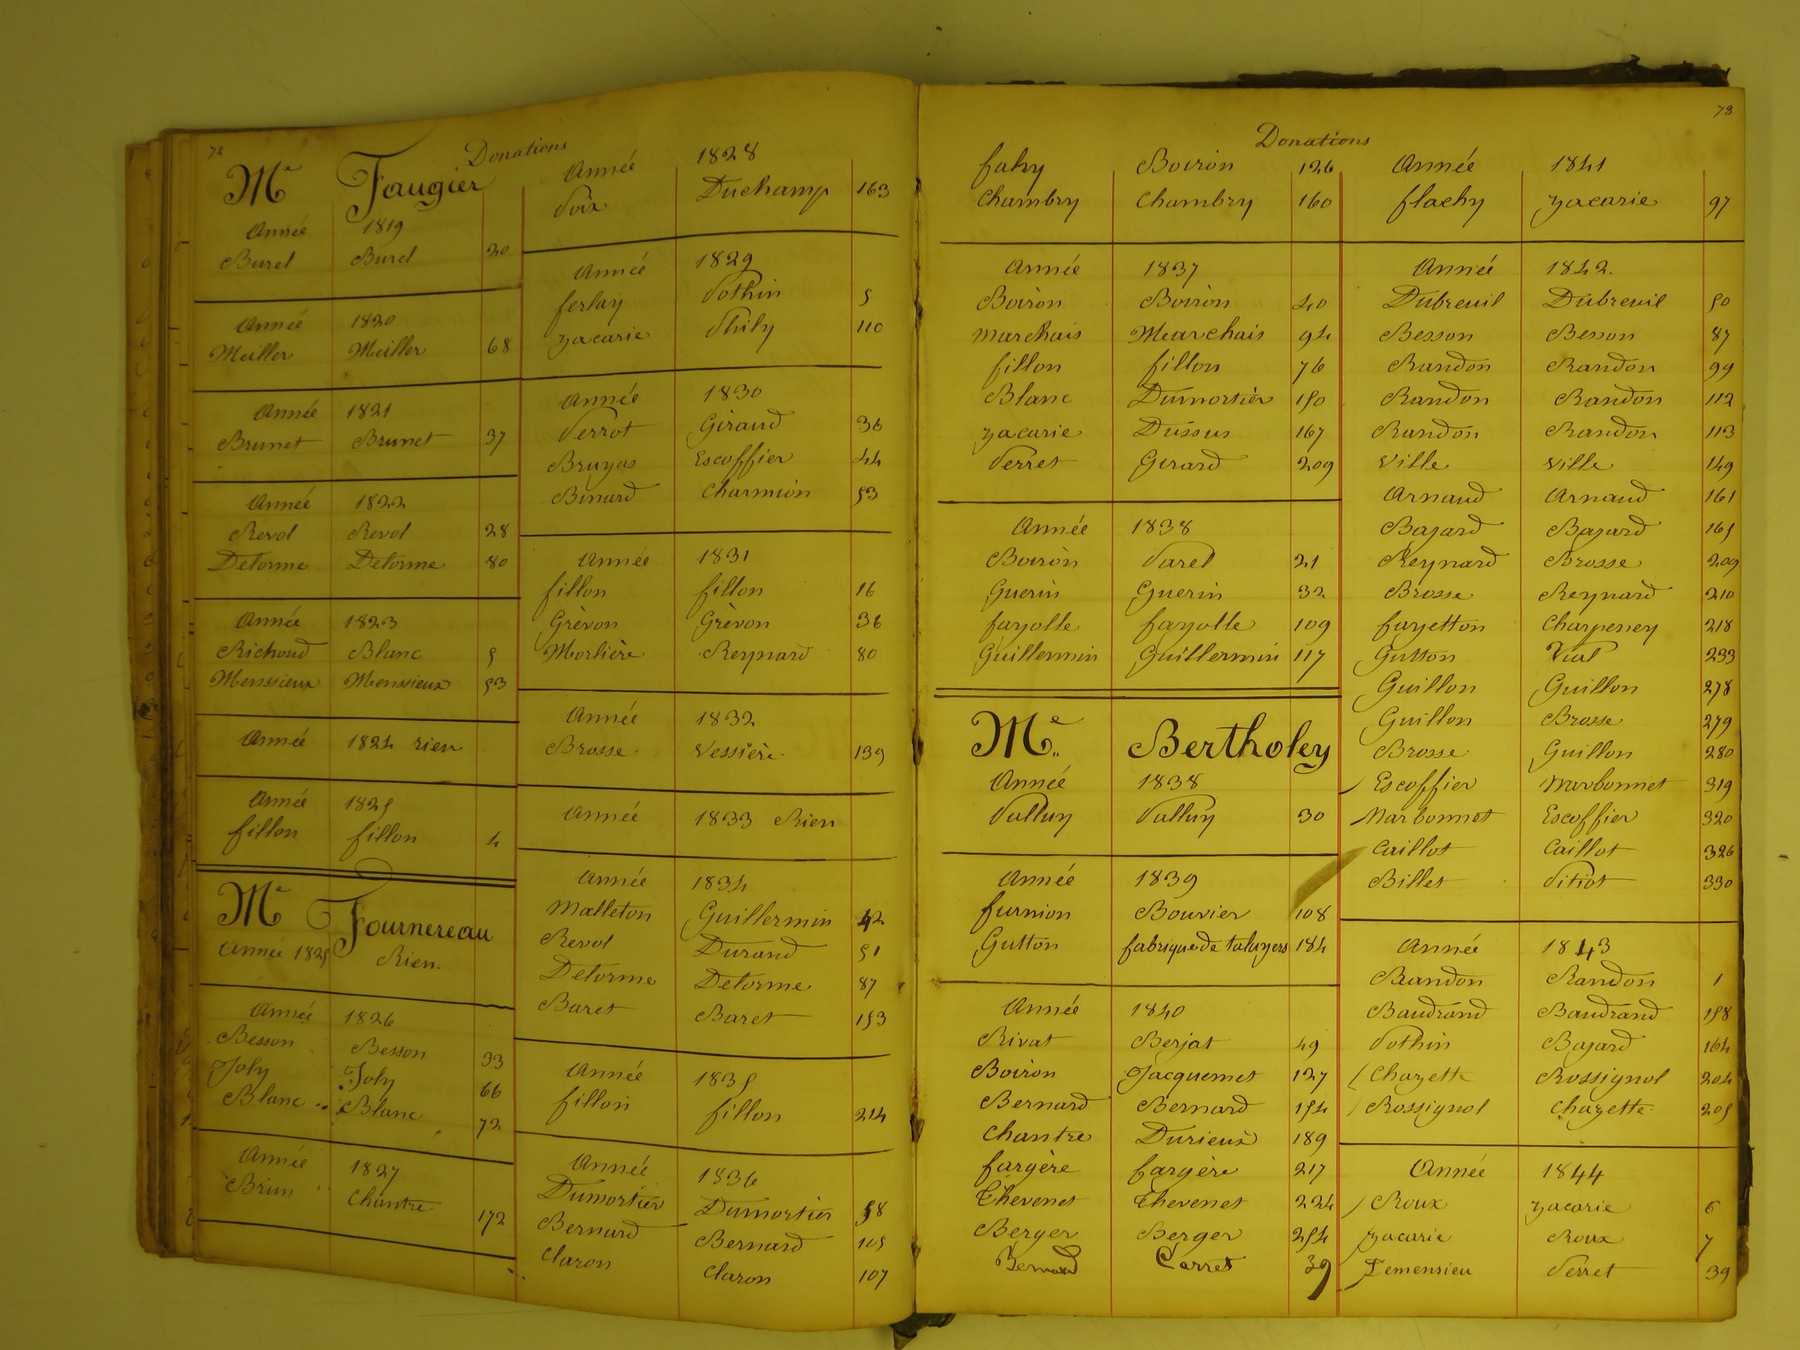 72
Donations
Me Faugier
Année 1819
Burel Burel 20
Année 1820
Meiller Meiller 68
Année 1821
Brunet Brunet 37
Année 1822
Revol Revol 28
Delorme Delorme 80
Année 1823
Richoud Blanc 5
Menssieux Menssieux 53
Année 1824 rien
Année 1825
fillon fillon 4
Me Fournereau
Année 1825 Rien.
Année 1826
Besson Besson 33
Joly Joly 66
Blanc Blanc 72
Année 1827
Brun Chantre 172
Année 1828
Voix Duchamp 163
Année 1829
ferlay Pothin 5
zacarie Phily 110
Année 1830
Perrot Giraud 36
Bruyas Escoffier 44
Binard Charmion 53
Année 1831
fillon fillon 16
Grèvon Grèvon 36
Morlière Reynard 80
Année 1832
Brosse Vessière 139
Année 1833 Rien
Année 1834
Malleton Guillermin 42
Revol Durand 51
Delorme Delorme 87
Baret Baret 153
Année 1835
fillon fillon 214
Année 1836
Dumortier Dumortier 58
Bernard Bernard 105
Claron Claron 107
73
Donations
fahy Boiron 126
Chambry Chambry 160
Année 1837
Boiron Boiron 40
Marchais Marchais 94
fillon fillon 76
Blanc Dumortier 150
zacarie Dussus 167
Perret Gerard 209
Année 1838
Boiron Parel 21
Guerin Guerin 32
fayolle fayolle 109
Guillermin Guillermin 117
Me Bertholey
Année 1838
Valluy Valluy 30
Année 1839
furnion Bouvier 108
Gutton fabrique de taluyers 184
Année 1840
Rivat Berjat 49
Boiron Jacquemet 127
Bernard Bernard 154
Chantre Durieux 189
fargère fargère 217
Thevenet Thevenet 224
Berger Berger 254
Bernard Carret 39
Année 1841
flachy zacarie 97
Année 1842.
Dubreuil Dubreuil 50
Besson Besson 87
Randon Randon 99
Randon Randon 112
Randon Randon 113
Ville Ville 149
Arnaud Arnaud 161
Bajard Bajard 165
Reynard Brosse 209
Brosse Reynard 210
fayetton Charpeney 218
Gutton Vial 233
Guillon Guillon 278
Guillon Brosse 279
Brosse Guillon 280
Escoffier Marbonnet 319
Marbonnet Escoffier 320
Caillot Caillot 326
Billet Pitiot 330
Année 1843
Randon Randon 1
Baudrand Baudrand 158
Pothin Bajard 164
Chazette Rossignol 204
Rossignol Chazette 205
Année 1844
Roux zacarie 6
zacarie Roux 7
Demensieu Perret 39